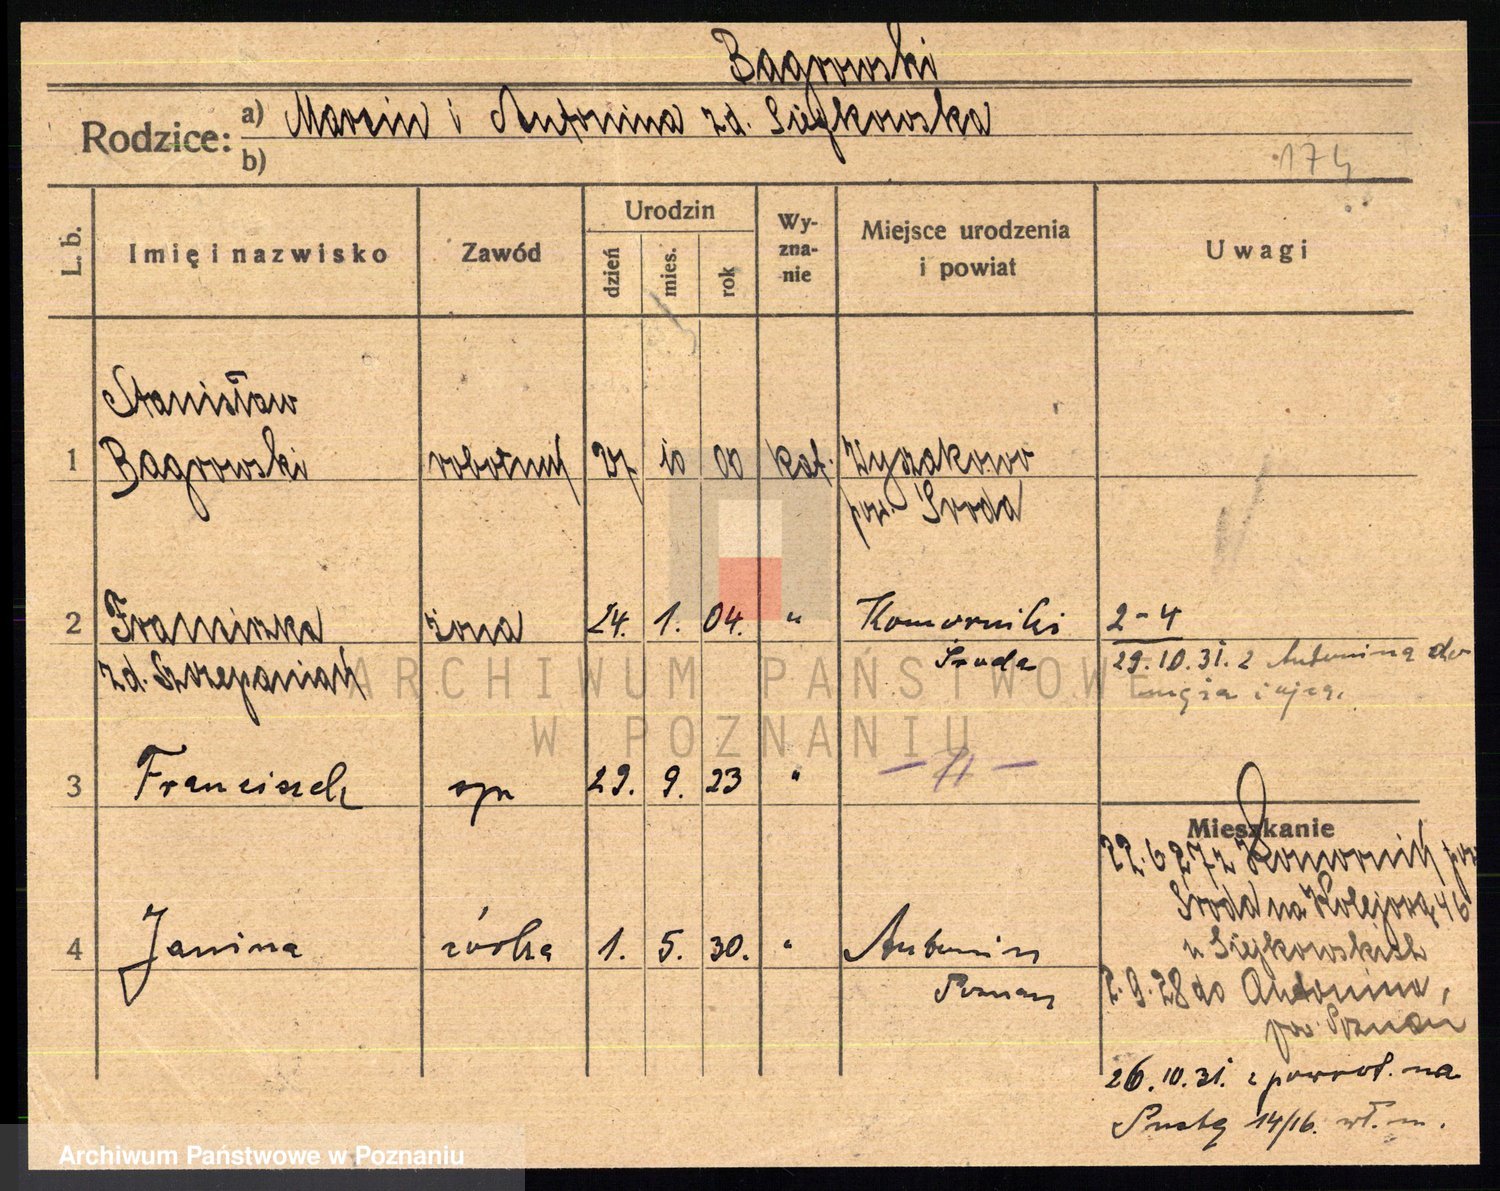 Bagrowski
Rodzice: a) Marcin i Antonina zd. Siejkowska
b)
174
L. b.
Imię i nazwisko
Zawód
Urodzin
dzień
mies.
rok
Wy-
zna-
nie
Miejsce urodzenia
i powiat
Uwagi
Stanisław
1 Bagrowski robotnik 27 10 00 kat.
pow. Środa
2 Franciszka żona 24. 1. 04. " Komorniki 2-4
zd. Szczepaniak Środa 29.10.31. z Antonina do
męża i ojca.
3 Franciszek syn 29. 9. 23 " — " —
Mieszkanie
22.6 27 z Komornik pow
Środa na Kolejową 46
u Siejkowskich
4 Janina córka 1. 5. 30. " Antonin
Poznań
2.9.28 do Antonina,
pow. Poznań
26.10.31. z powrot. na
Pustą 14/16. wł. m.
ARCHIWUM PAŃSTWOWE
W POZNANIU
Archiwum Państwowe w Poznaniu